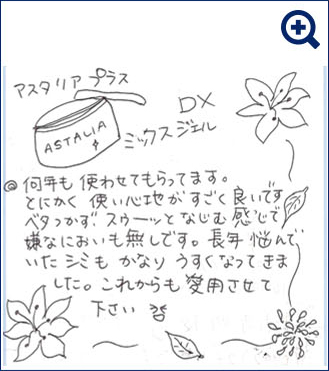 アスタリア プラス
DX
ASTALIA
ミックスジェル
◎何年も使わせてもらってます。
とにかく 使い心地がすごく良いです
ベタつかず、スゥーッとなじむ感じで
嫌なにおいも無しです。長年 悩んで
いた シミも かなり うすくなってきま
した。これからも愛用させて
下さい